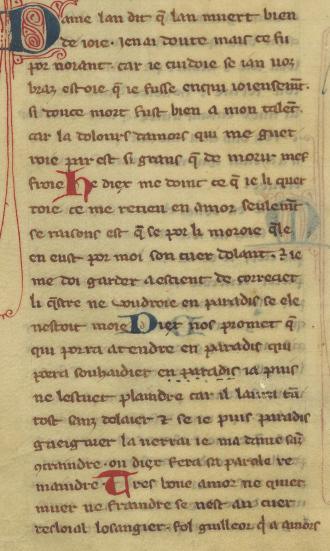 Dame lan dit q̃ lan muert bien
de ioie · ienai doute mais ce fu
por noiant · car ie cuidoie se ian uoz
braz estoie q̃ ie fusse enqui ioiensemt̃ ·
si douce mort fust bien a mon talẽt ·
car la dolours damors qui me guer
roie par est si grans q̃ de morir mef
froie He diex me doint ce q̃ ie li quer
roie ce me retieu en amor seulemt̃
se raisons est q̃ se por li moroie q̃le
en eust por moi son cuer dolant · ⁊ ie
me doi garder aescient de correcier
li q̃stre ne uoudroie en paradis se ele
nestoit moie Diex nos promet q̃
qui porra atendre en paradis qui
porra souhaidier en paradis ia puis
ne lestuet plaindre car il laura tã
tost sanz delaier ⁊ se ie puis paradis
gaeignier la uerrai ie ma dame sãz
ꝯtraindre · ou diex fera sa parole re
maindre Tres bone amor ne quiet
muer ne fraindre se nest au cuer
desloial losangier · fol guilleor q̃ a amors